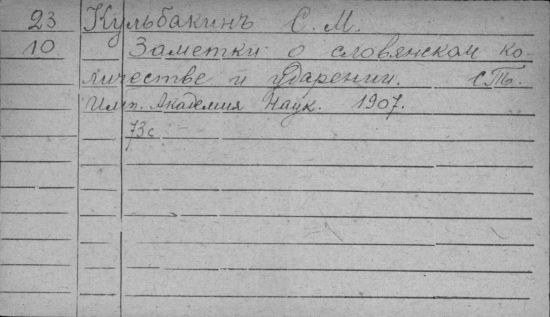 23 Кульбакинъ С. М.
10 Заметки о словянском ко-
личестве и ударении. СПб.
Имп. Академия Наук. 1907.
73с